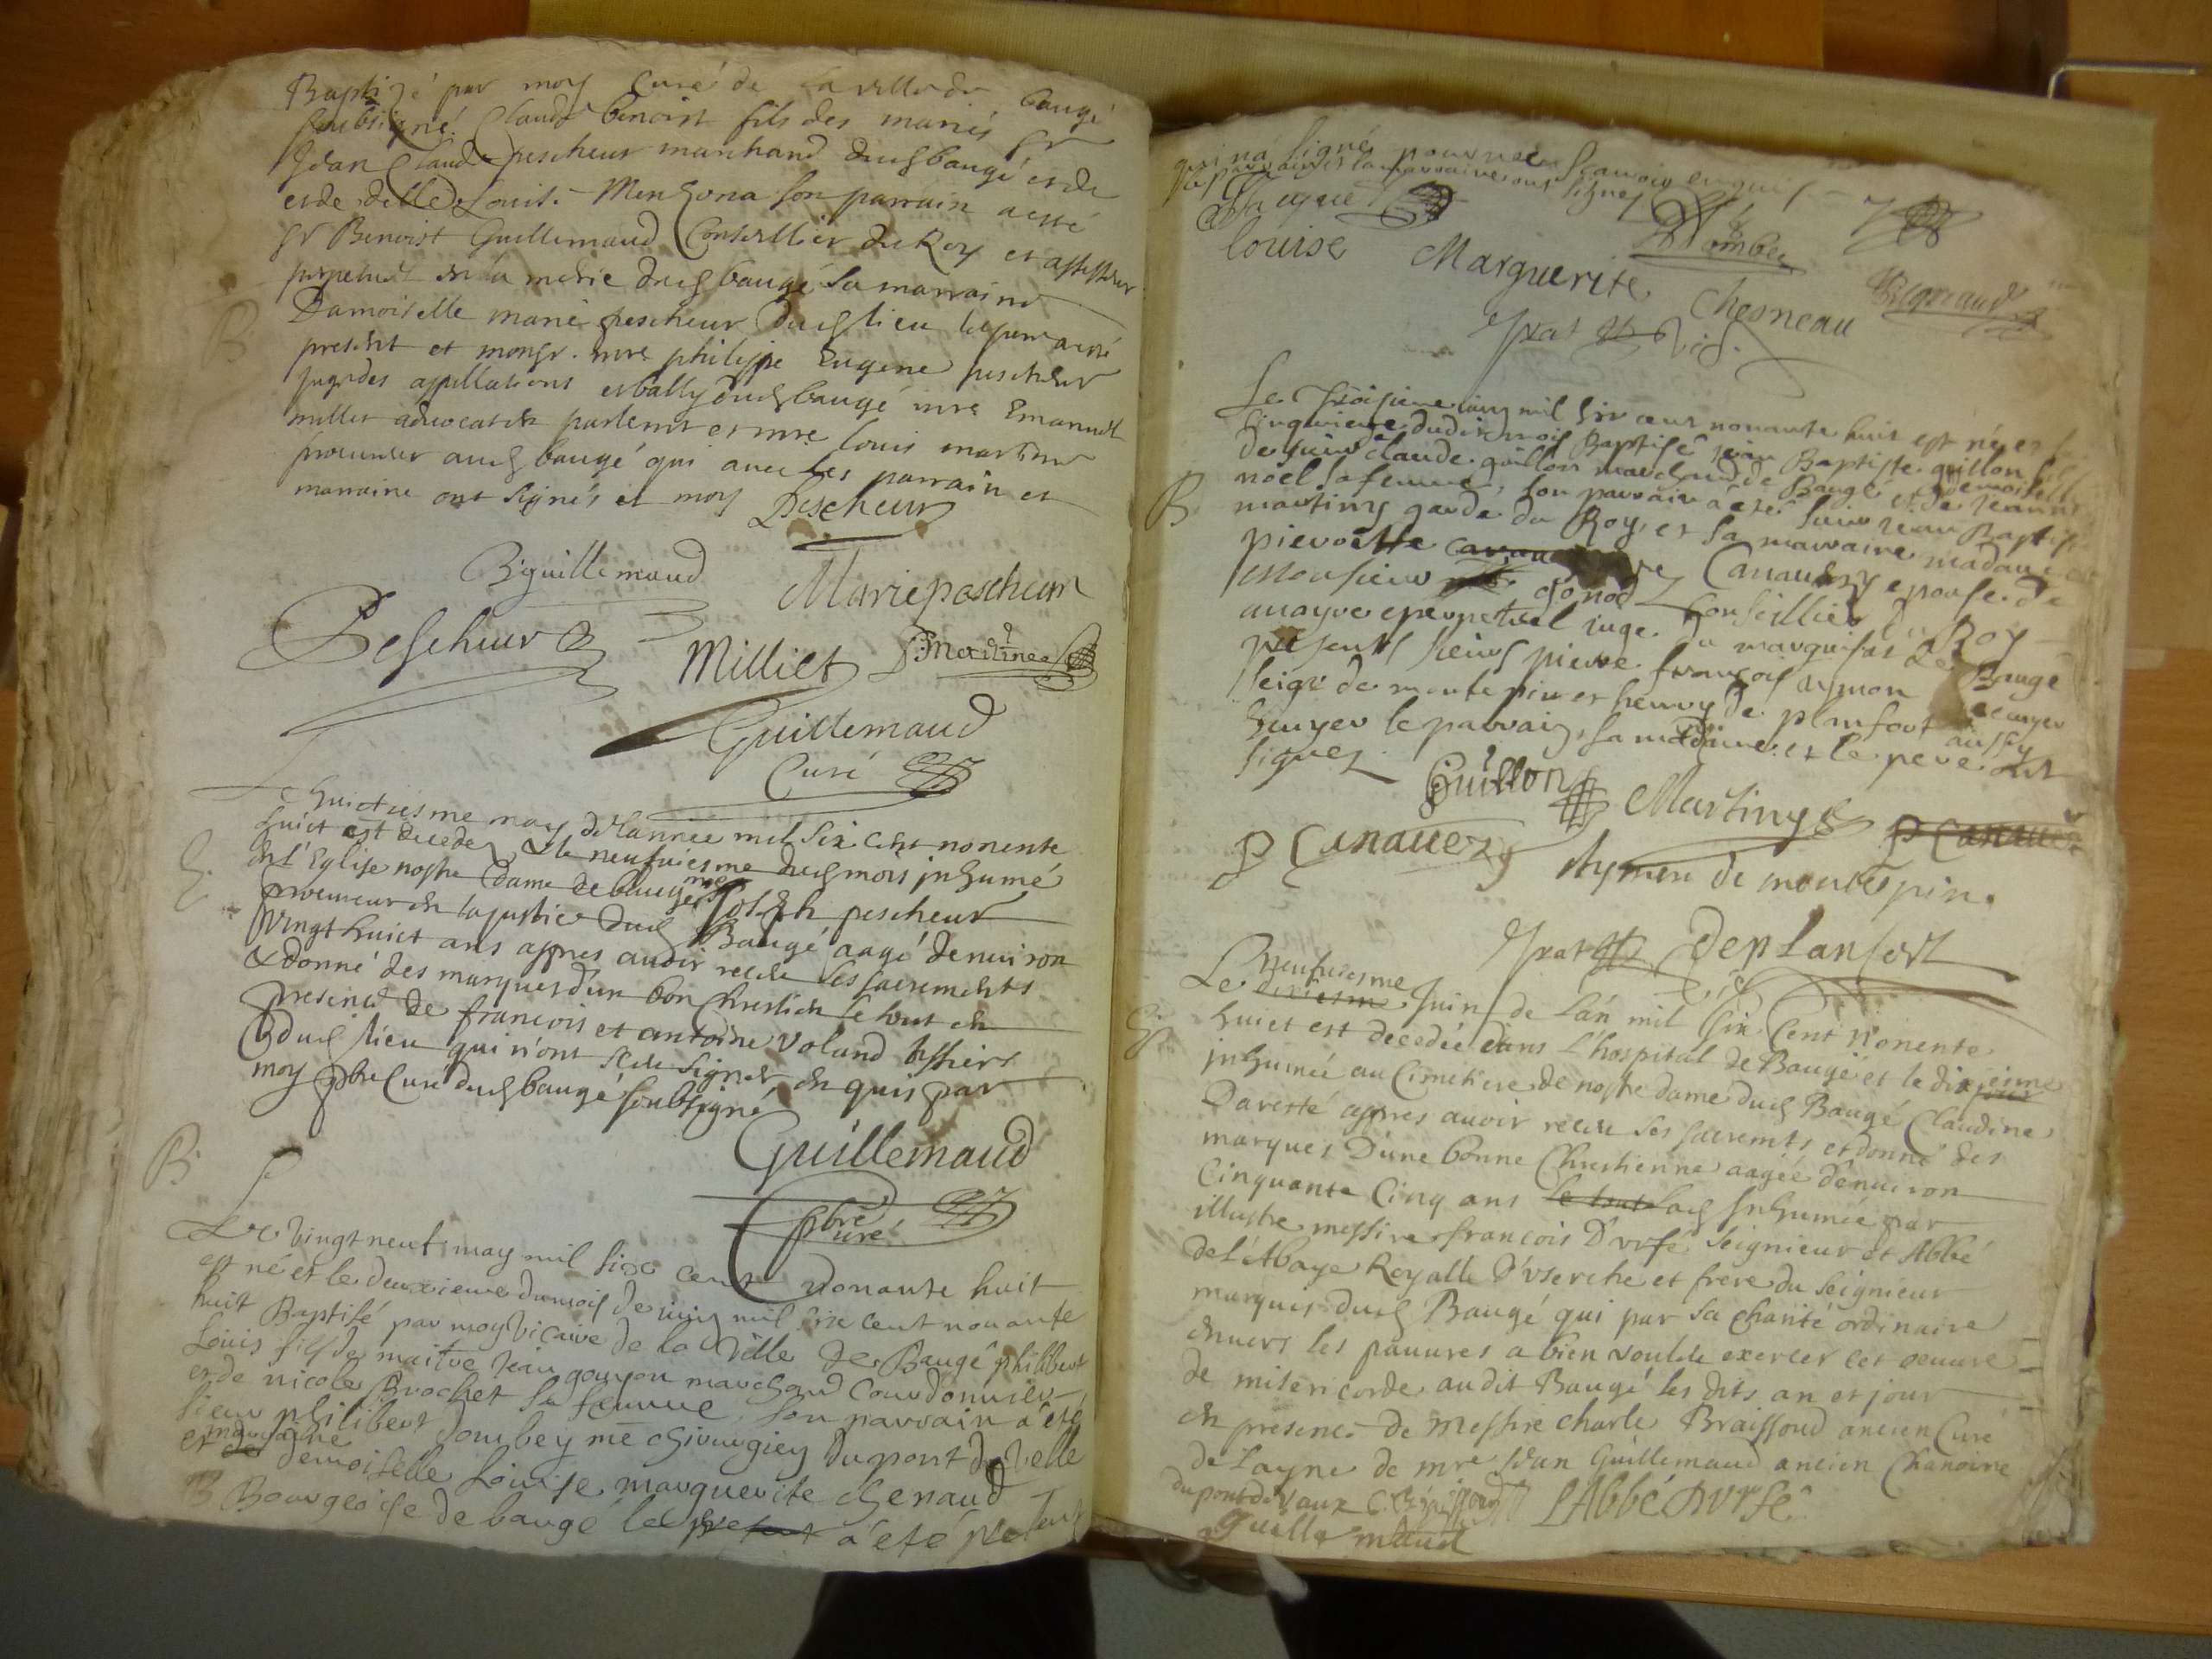 Baptizé par moy Curé de la ville de baugé
soubsigné Claude benoist fils des mariés sr
Jean Claude pescheur marchand dud baugé et de
et de delle Louise Mensona son parrain a esté
sr Benoist Guillemaud Conseillier du Roy et assesseur
perpetuel en la merie dud baugé sa marraine
Damoiselle marie pescheur dud lieu
present et monsr. mre philippe Eugene pescheur
juge des appellations et bally dud baugé mre Emanuel
millet advocat en parlemt et mre louis martine
procureur aud baugé qui avec les parrain et
B
marraine ont signés et moy Pescheur
B guillemaud
Marie pescheur
Pescheur
Milliet
Guillemaud
Curé
Le huictiesme may de l'année mil six cent nonente
huict est decedez & le neufuiesme dud mois inhumé
en l'Eglise nostre Dame de baugé mre Joseph pescheur
procureur en la justice dud Baugé aagé denuiron
vingt huict ans appres auoir receu ses sacrements
& donné des marques d'un bon Chrestien le tout en
presence de francois et antoine voland
dud lieu qui n'ont sceu signer en quis par
moy pbre Curé dud baugé soubsigné
Guillemaud
pbre Curé
B
Le vingt neuf may mil six cent nonante huit
est né et le deuxieme du mois de juin mil six cent nonante
huit Baptisé par moy vicaire de la ville de Baugé philibert
Louis fils de maitre Jean goyon marchand Cordonnier
et de nicole Brochet sa femme, son parrain a été
sieur philibert Dombey me chirurgien du pont de velle
et sa marraine demoiselle Louise marguerite Chenaud
B Bourgeoise de baugé le pere a été present
qui na signé pour ne scauoir enquis
le parrain et la marraine ont signez
Jacque
Dombey
louise Marguerite Chesneau
Prat vic.
Le troisieme juin mil six cent nonante huit est né et le
cinquieme dudit mois Baptisé jean Baptiste guillon fils
de sieur claude guillon marchand de Baugé et de demoiselle jeanne
noël sa femme, son parrain a été sieur jean Baptiste
B
martiny garde du Roy, et sa marraine madame
pierrette Canauezy epouse de
monsieur gonod Conseillier du Roy
auayre perpetuel juge du marquisat de Baugé
presents sieurs pierre françois aymon ecuyer
seigr de montepin et henry de planfort aussy
Ecuyer le parrain, la marraine et le pere ont
signez
Guillon Martiny P Canaue
P Canauezy Aymon de montespin.
Prat vic. De planfort
Le dixiesme neufuiesme Juin de l'an mil six Cent nonente
huict est decedée dans L'hospital de Baugé et le dixiesme jour
inhumée au Cimetiere de nostre dame dud Baugé Claudine
Dareste appres auoir receu ses sacremts et donné des
marques D'une bonne Chrestienne aagée denuiron
Cinquante Cinq ans le tout lad Inhumée par
illustre messire francois D'urfé seigneur et Abbé
de l'Abaye Royalle D'Userche et frere du seigneur
marquis dud Baugé qui par sa charité ordinaire
enuers les pauures a bien voulu exercer cet oeuure
de misericorde audit Baugé les dits an et jour
en presence de messire charle Braissoud ancien Curé
de Layne de mre Jean Guillemaud ancien Chanoine
du pont de Vaux L'Abbé D'urfé
Guillemaud